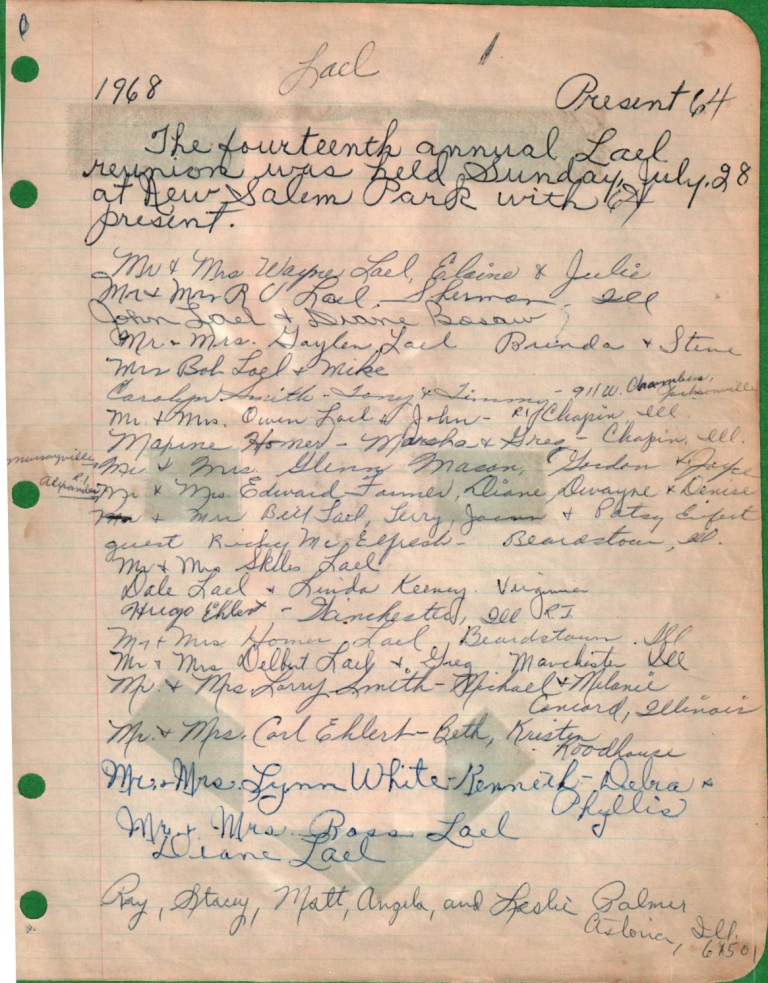 Lael
1968 Present 64
The fourteenth annual Lael
reunion was held Sunday, July, 28
at New Salem Park with 64
present.
Mr & Mrs Wayne Lael, Elaine & Julie
Mr & Mrs R O Lael. Sherman, Ill
John Lael & Diane
Mr. & Mrs. Gaylen Lael Brenda & Steve
Mrs Bob Lael & Mike
Carolyn Smith - Toney & Timmy - 911 W. Chambers, Jacksonville
Mr. & Mrs. Owen Lael & John - R1, Chapin Ill.
Maxine Homer - Marsha & Greg - Chapin, Ill.
Murrayville Mr. & Mrs. Glenn Mason, Gordon & Joyce
R.1 Alexander Mr & Mrs. Edward Farmer, Diane Dwayne & Denise
Mr & Mrs Bill Lael, Terry, & Patsy
guest Ricky - Beardstown, Ill.
Mr & Mrs Skiles Lael
Dale Lael & Linda Keeney. Virginia
Hugo Ehlert - Winchester, Ill R I
Mr & Mrs Homer Lael Beardstown. Ill
Mr & Mrs Delbert Lael & Greg Manchester Ill
Mr. & Mrs Larry Smith - Michael & Melanie
Concord, Illinois
Mr. & Mrs. Carl Ehlert - Beth, Kristen
Roodhouse
Mr. & Mrs. Lynn White - Kenneth - Debra &
Phyllis
Mr & Mrs. Ross Lael
Diane Lael
Ray, Stacey, Matt, Angela, and Leslie Palmer
Astoria, Ill.
61501